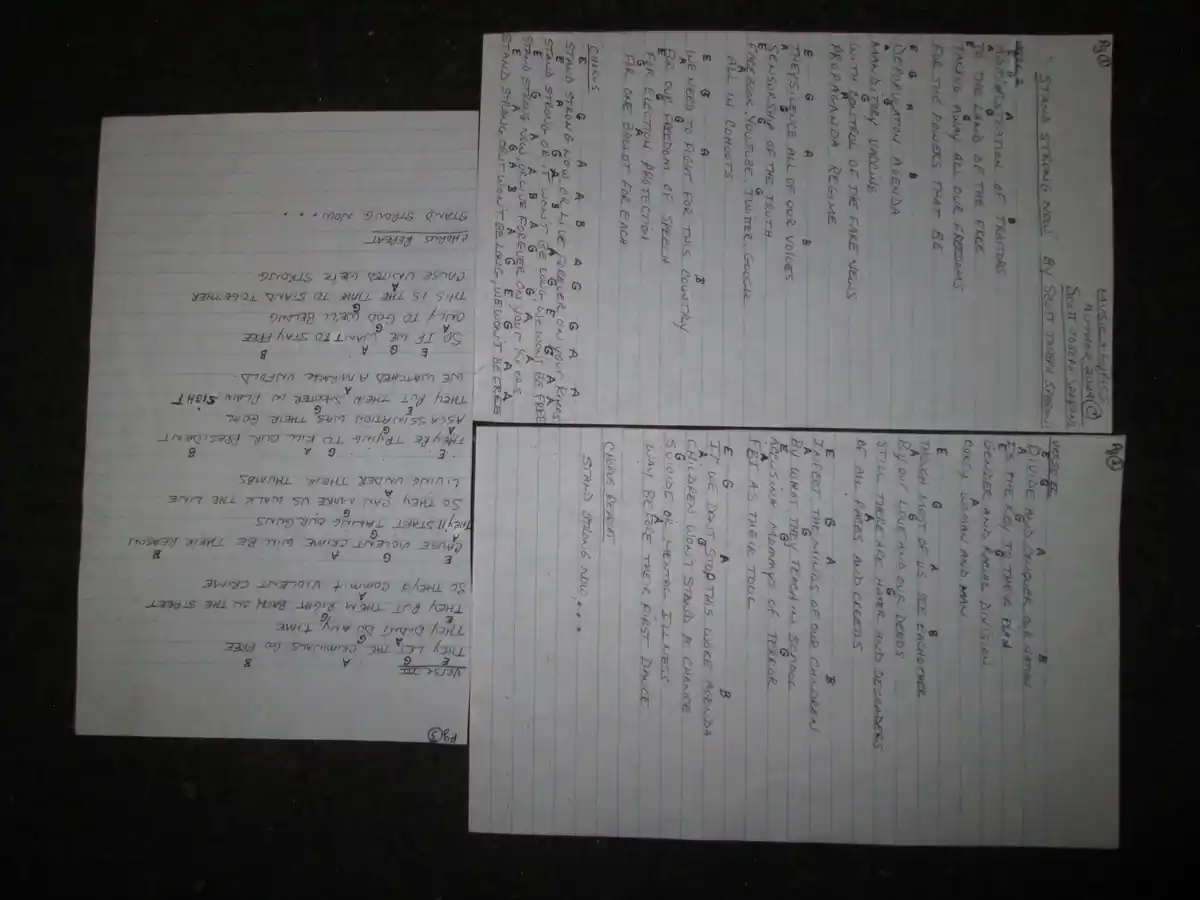 Pg 1
MUSIC & LYRICS
AUTHOR 2024 ©
SCOTT JOSEPH
"STAND STRONG NOW" BY SCOTT JOSEPH
E G A B
ADMINISTRATION OF TRAITORS
A G
TO THE LAND OF THE FREE
E G
TAKING AWAY ALL OUR FREEDOMS
A
FOR THE POWERS THAT BE
E G A B
DEPOPULATION AGENDA
A G
MANDITORY VACCINE
WITH CONTROL OF THE FAKE NEWS
A
PROPAGANDA REGIME
E G A B
THEY SILENCE ALL OF OUR VOICES
A G
SENSORSHIP OF THE TRUTH
E G
FACEBOOK, YOUTUBE, TWITTER GOOGLE
A
ALL IN COHORTS
E G A B
WE NEED TO FIGHT FOR THIS COUNTRY
A G
FOR OUR FREEDOM OF SPEECH
E G
FOR ELECTION PROTECTION
A
FAR ONE BALLOT FOR EACH
CHORUS
E G A A B A G G A A
STAND STRONG NOW, OR LIVE FOREVER ON YOUR KNEES
STAND STRONG OR IT WON'T BE LONG, WE WON'T BE FREE
STAND STRONG NOW, OR LIVE FOREVER ON YOUR KNEES
STAND STRONG OR IT WON'T BE LONG, WE WON'T BE FREE
Pg 2
E G A B
DIVIDE AND CONQUER OUR NATION
A G
IS THE KEY TO THEIR PLAN
E G
GENDER AND RACIAL DIVISION
A
WOMAN AND MAN
E G A B
THOUGH MOST OF US SEE EACHOTHER
A G
BY OUR LOVE AND OUR DEEDS
E G
STILL THERE ARE HATER AND DEGRADERS
A
OF ALL RACES AND CREEDS
E G A B
INFECT THE MINDS OF OUR CHILDREN
A G
BY WHAT THEY TEACH IN SCHOOL
E G
ACCUSING MOMMYS OF TERROR
A
FBI AS THEIR TOOL
E G A B
IF WE DON'T STOP THIS WOKE AGENDA
A G
CHILDREN WON'T STAND A CHANCE
E G
SUICIDE OR MENTAL ILLNESS
A
WAY BEFORE THEIR FIRST DANCE
CHORUS REPEAT
STAND STRONG NOW....
Pg 3
VERSE III
E G A B
THEY LET THE CRIMINALS GO FREE
A G
THEY DIDN'T DO ANY TIME
E G
THEY PUT THEM RIGHT BACK ON THE STREET
A
SO THEY'D COMMIT VIOLENT CRIME
E G A B
CAUSE VIOLENT CRIME WILL BE THEIR REASON
A G
THEY'll START TAKING OUR GUNS
SO THEY CAN MAKE US WALK THE LINE
A
LIVING UNDER THEIR THUMBS
E G A B
THEY'RE TRYING TO KILL OUR PRESIDENT
A G
ASSASSINATION WAS THEIR GOAL
E G
THEY PUT THEIR SHOOTER IN PLAIN SIGHT
A
WE WATCHED A MIRACLE UNFOLD
E G A B
SO IF WE WANT TO STAY FREE
A G
ONLY TO GOD WE'LL BELONG
G
THIS IS THE TIME TO STAND TOGETHER
A
CAUSE UNITED WE'RE STRONG
CHORUS REPEAT
STAND STRONG NOW....